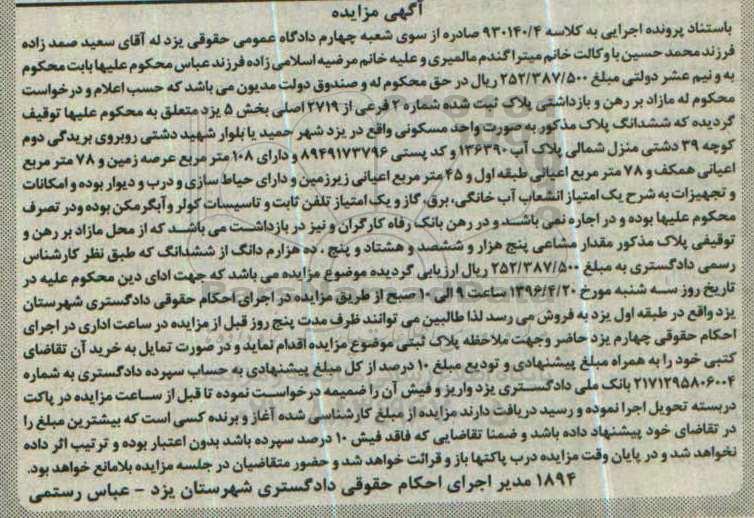 آگهی مزایده
باستناد پرونده اجرایی به کلاسه ۹۳۰۱۴۰/۴ صادره از سوی شعبه چهارم دادگاه عمومی حقوقی یزد له آقای سعید صمد زاده
فرزند محمد حسین با وکالت خانم میترا گندم مالمیری و علیه خانم مرضیه اسلامی زاده فرزند عباس محکوم علیها بابت محکوم
به و نیم عشر دولتی مبلغ ۲۵۲/۳۸۷/۵۰۰ ریال در حق محکوم له و صندوق دولت مدیون می باشد که حسب اعلام و درخواست
محکوم له مازاد بر رهن و بازداشتی پلاک ثبت شده شماره ۲ فرعی از ۲۷۱۹ اصلی بخش ۵ یزد متعلق به محکوم علیها توقیف
گردیده که ششدانگ پلاک مذکور به صورت واحد مسکونی واقع در یزد شهر حمید یا بلوار شهید دشتی روبروی بریدگی دوم
کوچه ۳۹ دشتی منزل شمالی پلاک آب ۱۳۶۳۹۰ و کد پستی ۸۹۴۹۱۷۳۷۹۶ و دارای ۱۰۸ متر مربع عرصه زمین و ۷۸ متر مربع
اعیانی همکف و ۷۸ متر مربع اعیانی طبقه اول و ۴۵ متر مربع اعیانی زیرزمین و دارای حیاط سازی و درب و دیوار بوده و امکانات
و تجهیزات به شرح یک امتیاز انشعاب آب خانگی، برق، گاز و یک امتیاز تلفن ثابت و تاسیسات کولر و آبگرمکن بوده ودر تصرف
محکوم علیها بوده و در اجاره نمی باشد و در رهن بانک رفاه کارگران و نیز در بازداشت می باشد که از محل مازاد بر رهن و
توقیفی پلاک مذکور مقدار مشاعی پنج هزار و ششصد و هشتاد و پنج ، ده هزارم دانگ از ششدانگ که طبق نظر کارشناس
رسمی دادگستری به مبلغ ۲۵۲/۳۸۷/۵۰۰ ریال ارزیابی گردیده موضوع مزایده می باشد که جهت ادای دین محکوم علیه در
تاریخ روز سه شنبه مورخ ۱۳۹۶/۴/۲۰ ساعت ۹ الی ۱۰ صبح از طریق مزایده در اجرای احکام حقوقی دادگستری شهرستان
یزد واقع در طبقه اول یزد به فروش می رسد لذا طالبین می توانند ظرف مدت پنج روز قبل از مزایده در ساعت اداری در اجرای
احکام حقوقی چهارم یزد حاضر وجهت ملاحظه پلاک ثبتی موضوع مزایده اقدام نماید و در صورت تمایل به خرید آن تقاضای
کتبی خود را به همراه مبلغ پیشنهادی و تودیع مبلغ ۱۰ درصد از کل مبلغ پیشنهادی به حساب سپرده دادگستری به شماره
۲۱۷۱۲۹۵۸۰۶۰۰۴ بانک ملی دادگستری یزد واریز و فیش آن را ضمیمه درخواست نموده تا قبل از ساعت مزایده در پاکت
دربسته تحویل اجرا نموده و رسید دریافت دارند مزایده از مبلغ کارشناسی شده آغاز و برنده کسی است که بیشترین مبلغ را
در تقاضای خود پیشنهاد داده باشد و ضمنا تقاضایی که فاقد فیش ۱۰ درصد سپرده باشد بدون اعتبار بوده و ترتیب اثر داده
نخواهد شد و در پایان وقت مزایده درب پاکتها باز و قرائت خواهد شد و حضور متقاضیان در جلسه مزایده بلامانع خواهد بود.
۱۸۹۴ مدیر اجرای احکام حقوقی دادگستری شهرستان یزد - عباس رستمی